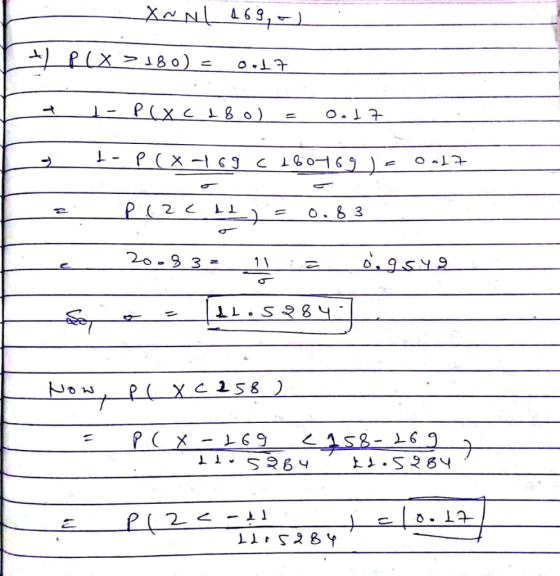 X ~ N( 169, σ)
→) P(X > 180) = 0.17
→ 1 - P(X < 180) = 0.17
→ 1 - P(X - 169 / σ < 180 - 169 / σ) = 0.17
= P(Z < 11 / σ) = 0.83
= Z0.83 = 11 / σ = 0.9542
So, σ = 11.5284
Now, P( X < 158 )
= P( X - 169 / 11.5284 < 158 - 169 / 11.5284 )
= P( Z < -11 / 11.5284 ) = 0.17